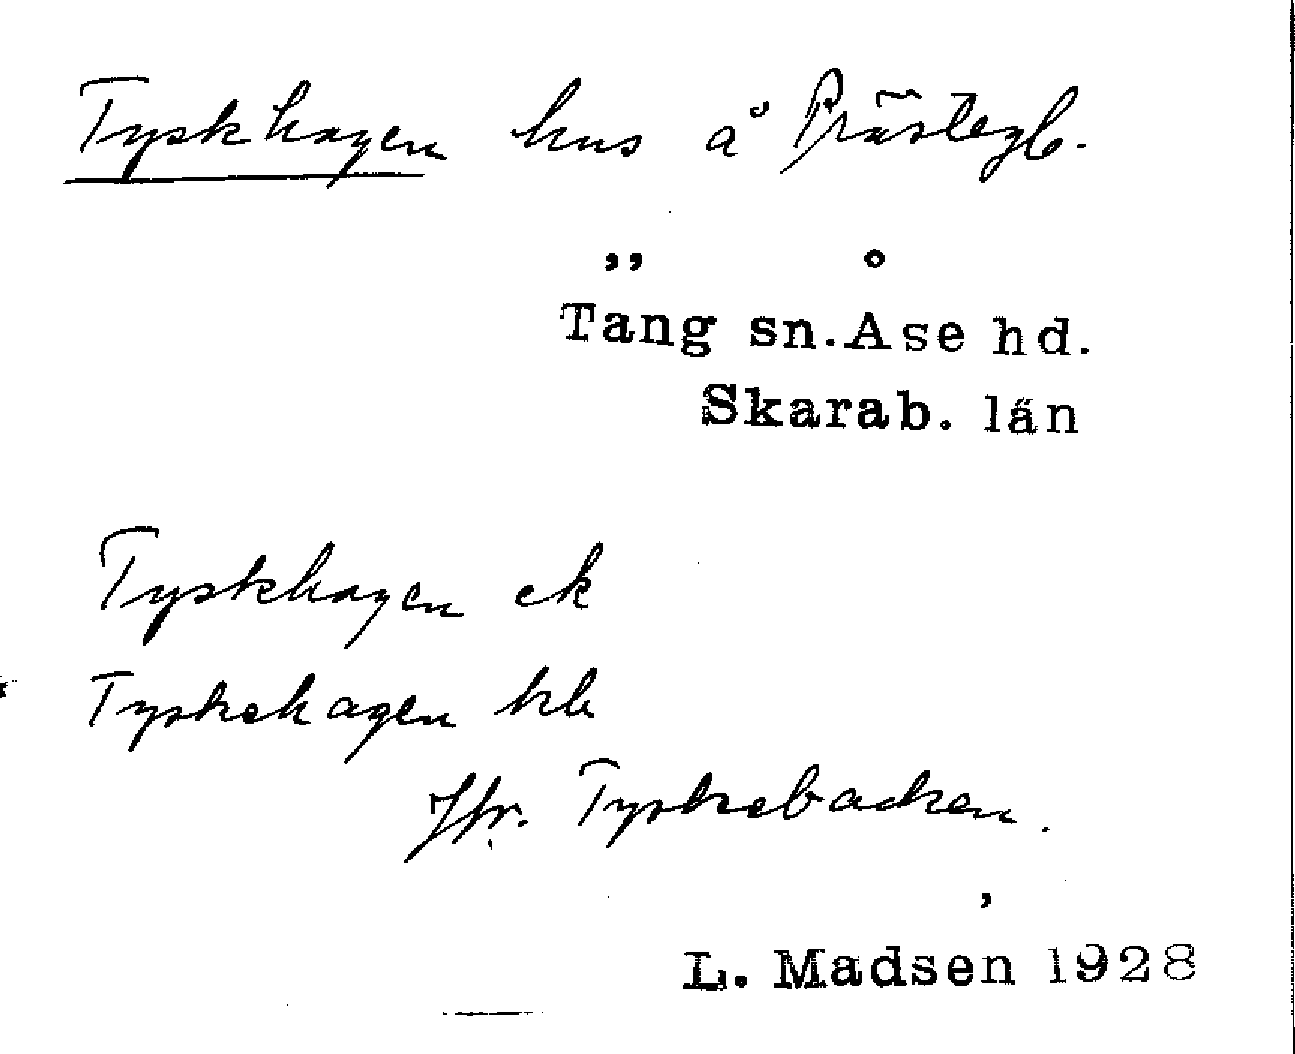 Tyskhagen hus å Prästegb.
Tång sn. Åse hd.
Skarab. län
Tyskhagen ek
Tyskehagen kb
Jfr. Tyskebacken.
L. Madsen 1928